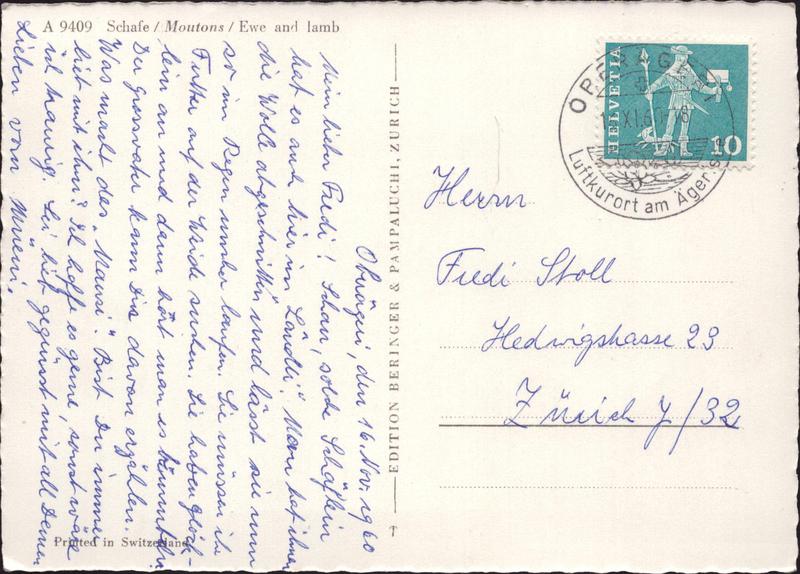 A 9409 Schafe / Moutons / Ewe and lamb
Oberägeri, den 16. Nov. 1960
Mein lieber Fredi! Schau, solche Schäflein
hat es auch hier im Ländli". Man hat ihnen
die Wolle abgeschnitten und lässt sie nun
so im Regen umher laufen. Sie müssen ihr
Futter auf der Weide suchen. Sie haben Glöck-
lein an und dann hört man es
Der Grossvater kann Dir davon erzählen.
Was macht das „Mausi". Bist Du immer
lieb mit ihm? Ich hoffe es gerne, sonst wäre
ich traurig. Sei lieb gegrüsst mit all Deinen
Lieben vom
Printed in Switzerland
EDITION BERINGER & PAMPALUCHI, ZURICH
HELVETIA
10
OBERÄGERI
XI.60
Luftkurort am Ägeri
Herrn
Fredi Stoll
Hedwigstrasse 23
Zürich 7/32